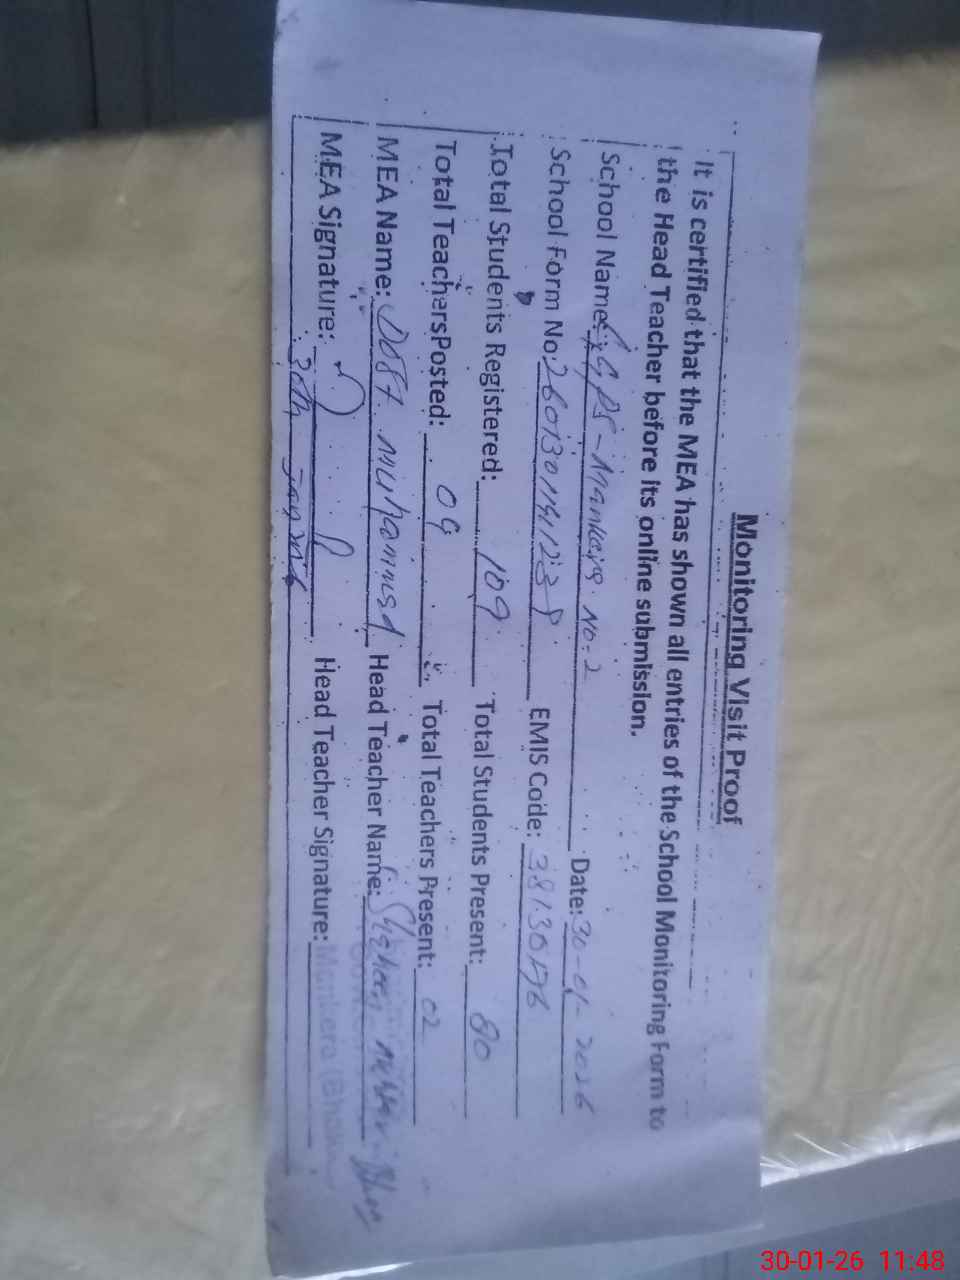 Monitoring Visit Proof
It is certified that the MEA has shown all entries of the School Monitoring Form to
the Head Teacher before its online submission.
School Name: GPS - Mankera No: 2 Date: 30-01-2026
School Form No: EMIS Code:
Total Students Registered: 109 Total Students Present: 80
Total Teachers Posted: 09 Total Teachers Present: 02
MEA Name: Dost Muhammad Head Teacher Name:
MEA Signature: Head Teacher Signature: Mankera (Bhakkar
30th Jan
30-01-26 11:48